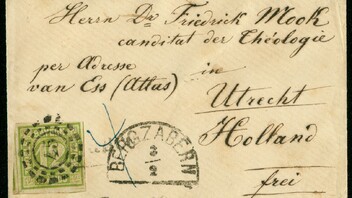 Herrn Dr Friedrick Mook
canditat der Théologie
per Adresse in
van Ess (Attus)
Utrecht
Holland
frei
BERGZABERN